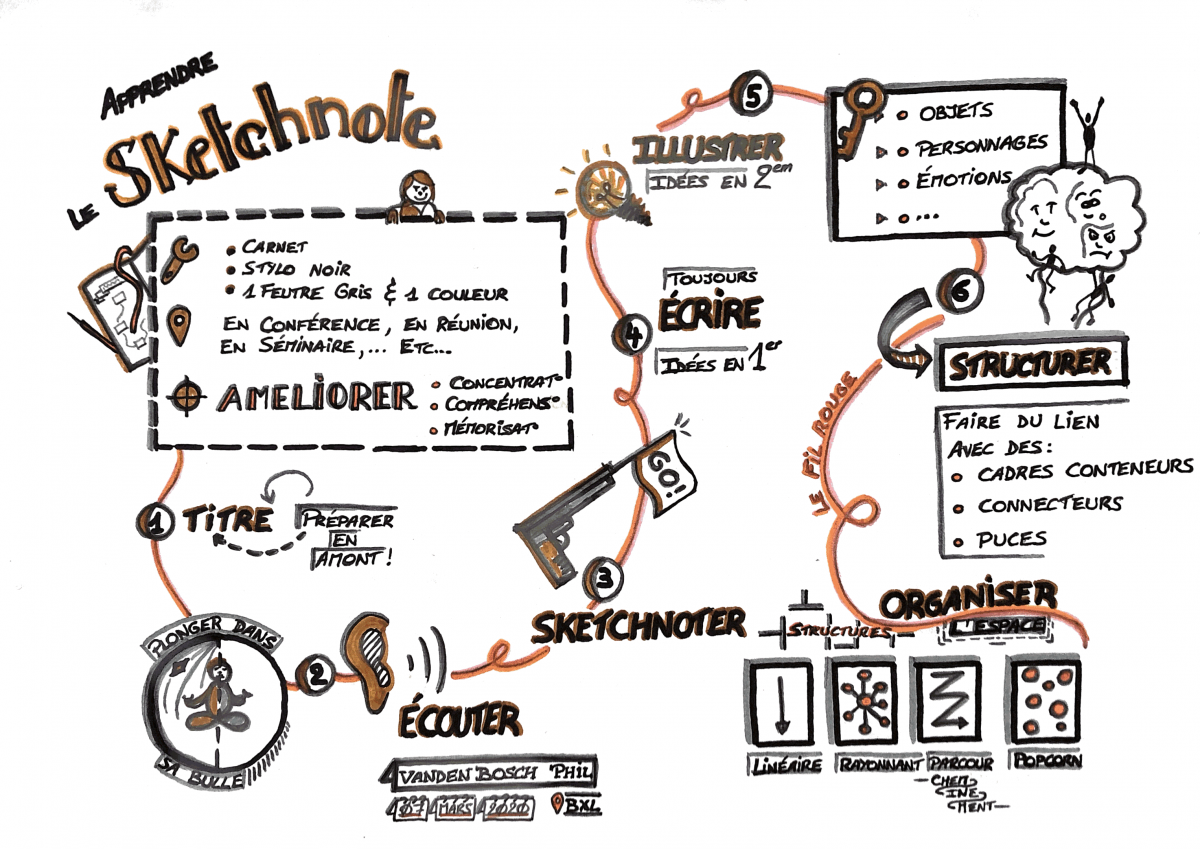 APPRENDRE
LE SKetchnote
• CARNET
• STYLO NOIR
• 1 FEUTRE GRIS & 1 COULEUR
EN CONFÉRENCE, EN RÉUNION,
EN SÉMINAIRE,... ETC...
AMELIORER
• CONCENTRAT°
• COMPRÉHENS°
• MÉMORISAT°
1 TITRE
PRÉPARER
EN
AMONT !
PLONGER DANS
SA BULLE
2
ÉCOUTER
3
SKETCHNOTER
GO!
4
TOUJOURS
ÉCRIRE
IDÉES EN 1er
5
ILLUSTRER
IDÉES EN 2em
• OBJETS
• PERSONNAGES
• ÉMOTIONS
• ...
6
STRUCTURER
FAIRE DU LIEN
AVEC DES :
• CADRES CONTENEURS
• CONNECTEURS
• PUCES
LE FIL ROUGE
ORGANISER
L'ESPACE
STRUCTURES
LINÉAIRE
RAYONNANT
PARCOUR
CHEM
INE
MENT
POPCORN
VANDEN BOSCH PHIL
07 MARS 2020 BXL